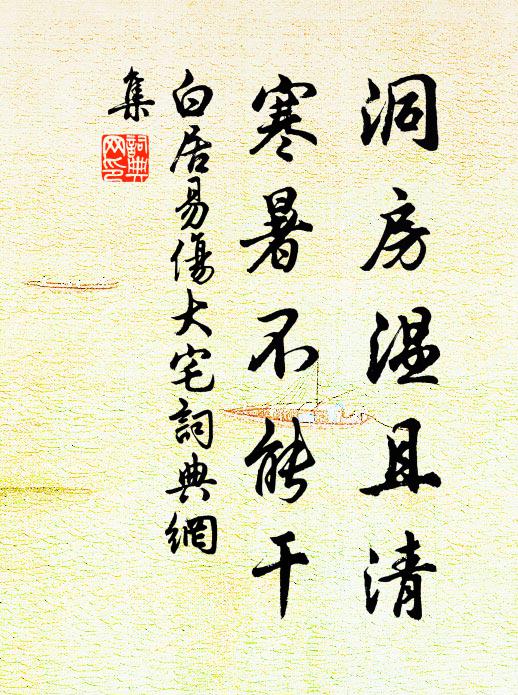 洞房温且清
寒暑不能干
白居易傷大宅詞典網
集
詞典
网印